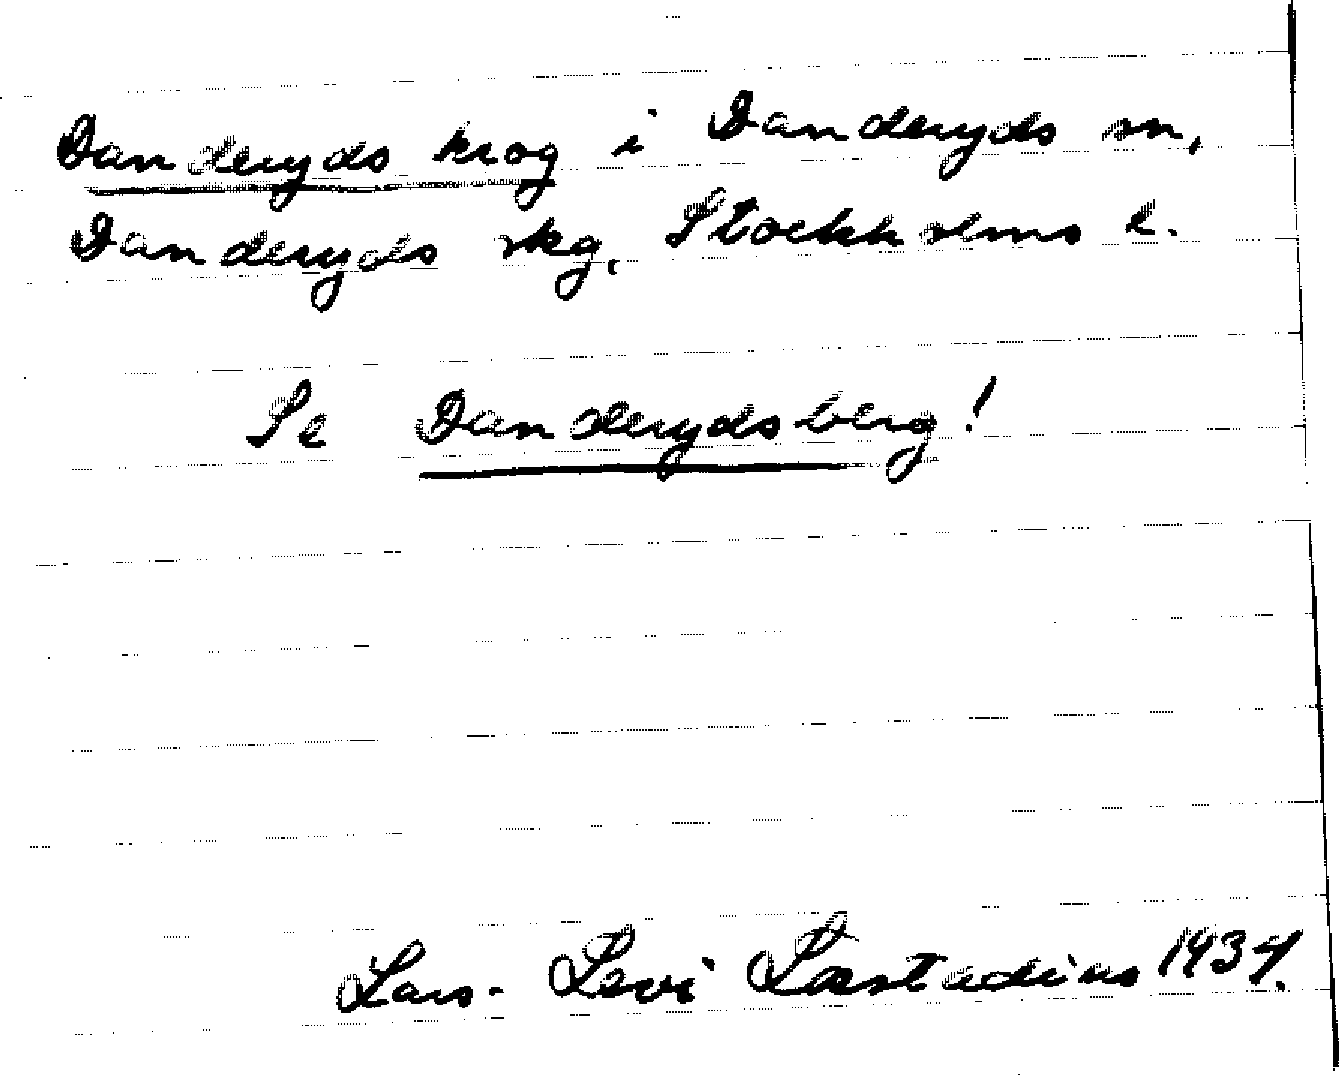 Danderyds krog i Danderyds sn,
Danderyds skg, Stockholms l.
Se Danderydsberg!
Lars-Levi Læstadius 1937.